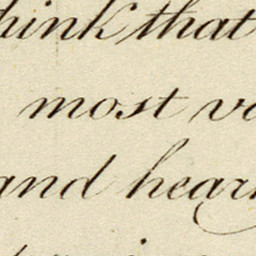 hink that
most va
and hear